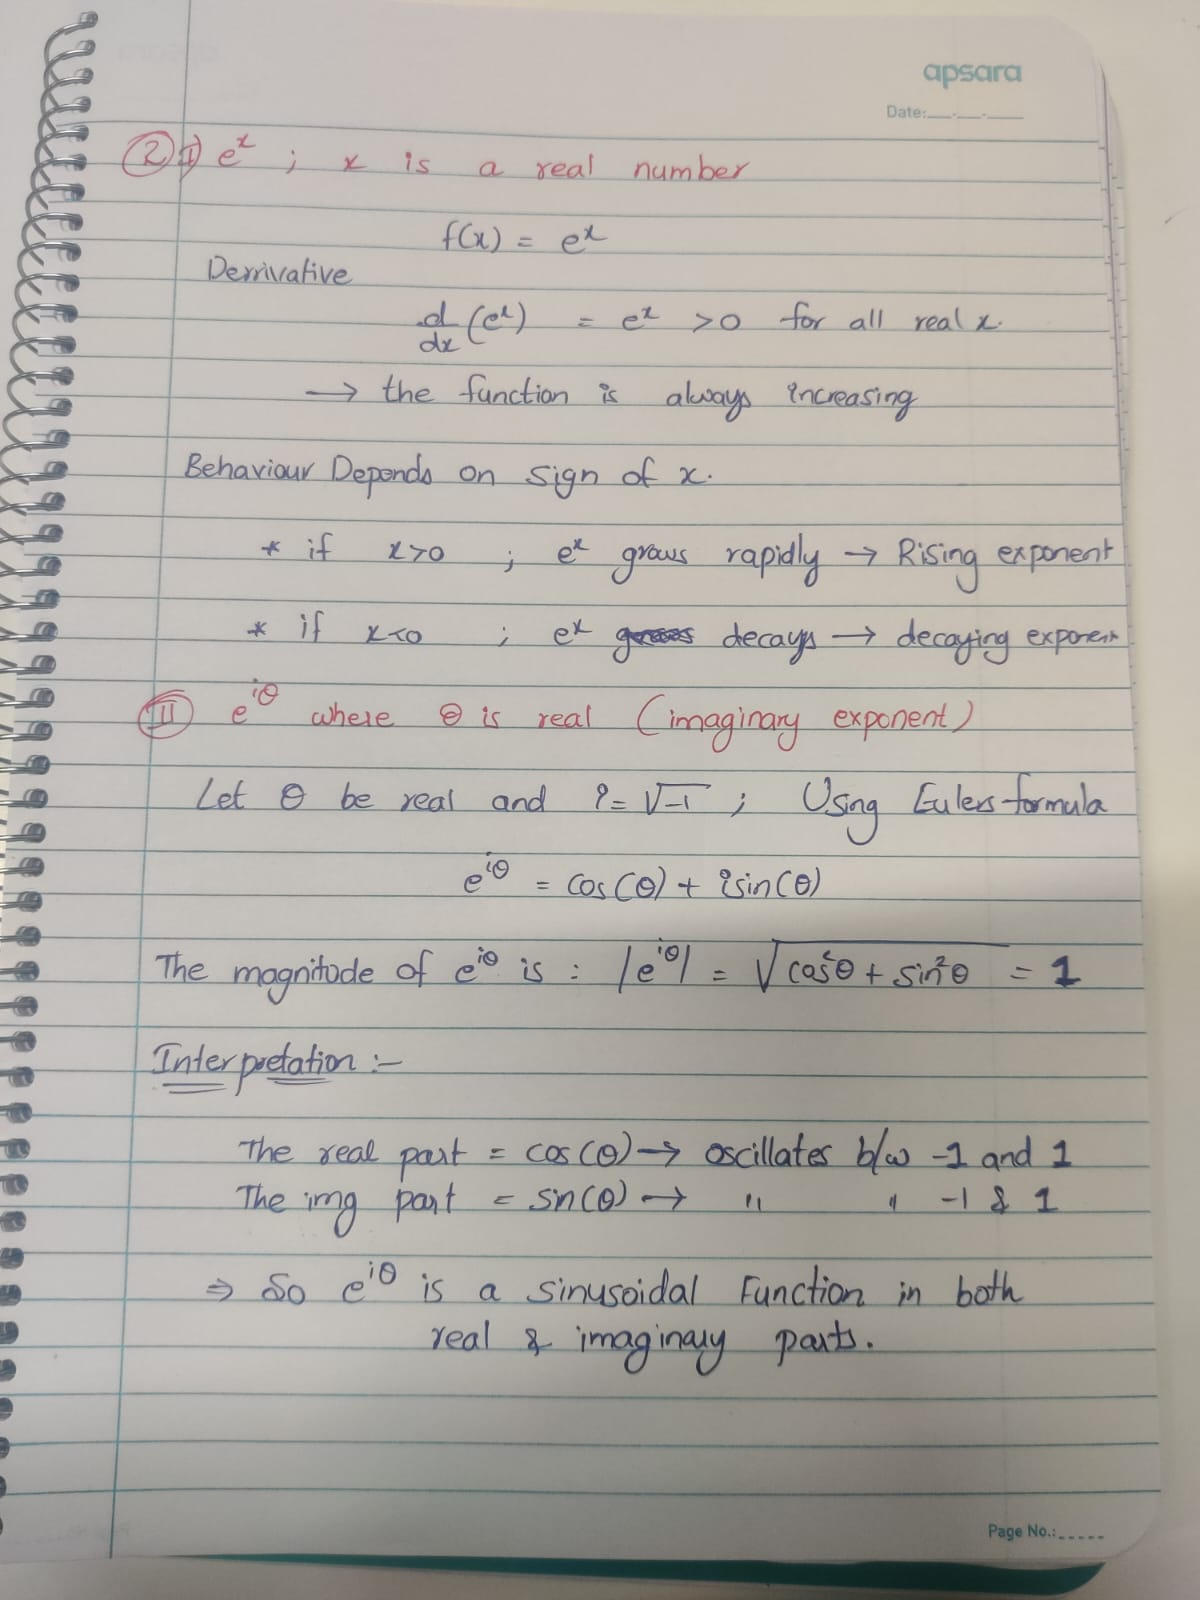 apsara
Date:
② I) e^x ; x is a real number
f(x) = e^x
Derrivative
d/dx (e^x) = e^x >0 for all real x.
→ the function is always increasing
Behaviour Depends on sign of x.
* if x>0 ; e^x grows rapidly → Rising exponent
* if x<0 ; e^x decays → decaying exponent
Ⅱ e^iθ where θ is real (imaginary exponent)
Let θ be real and i = √-1 ; Using Eulers formula
e^iθ = cos(θ) + isin(θ)
The magnitude of e^iθ is : |e^iθ| = √cos²θ + sin²θ = 1
Interpretation :-
The real part = cos(θ) → oscillates b/w -1 and 1
The img part = sin(θ) → " " -1 & 1
⇒ So e^iθ is a sinusoidal Function in both
real & imaginary parts.
Page No.: